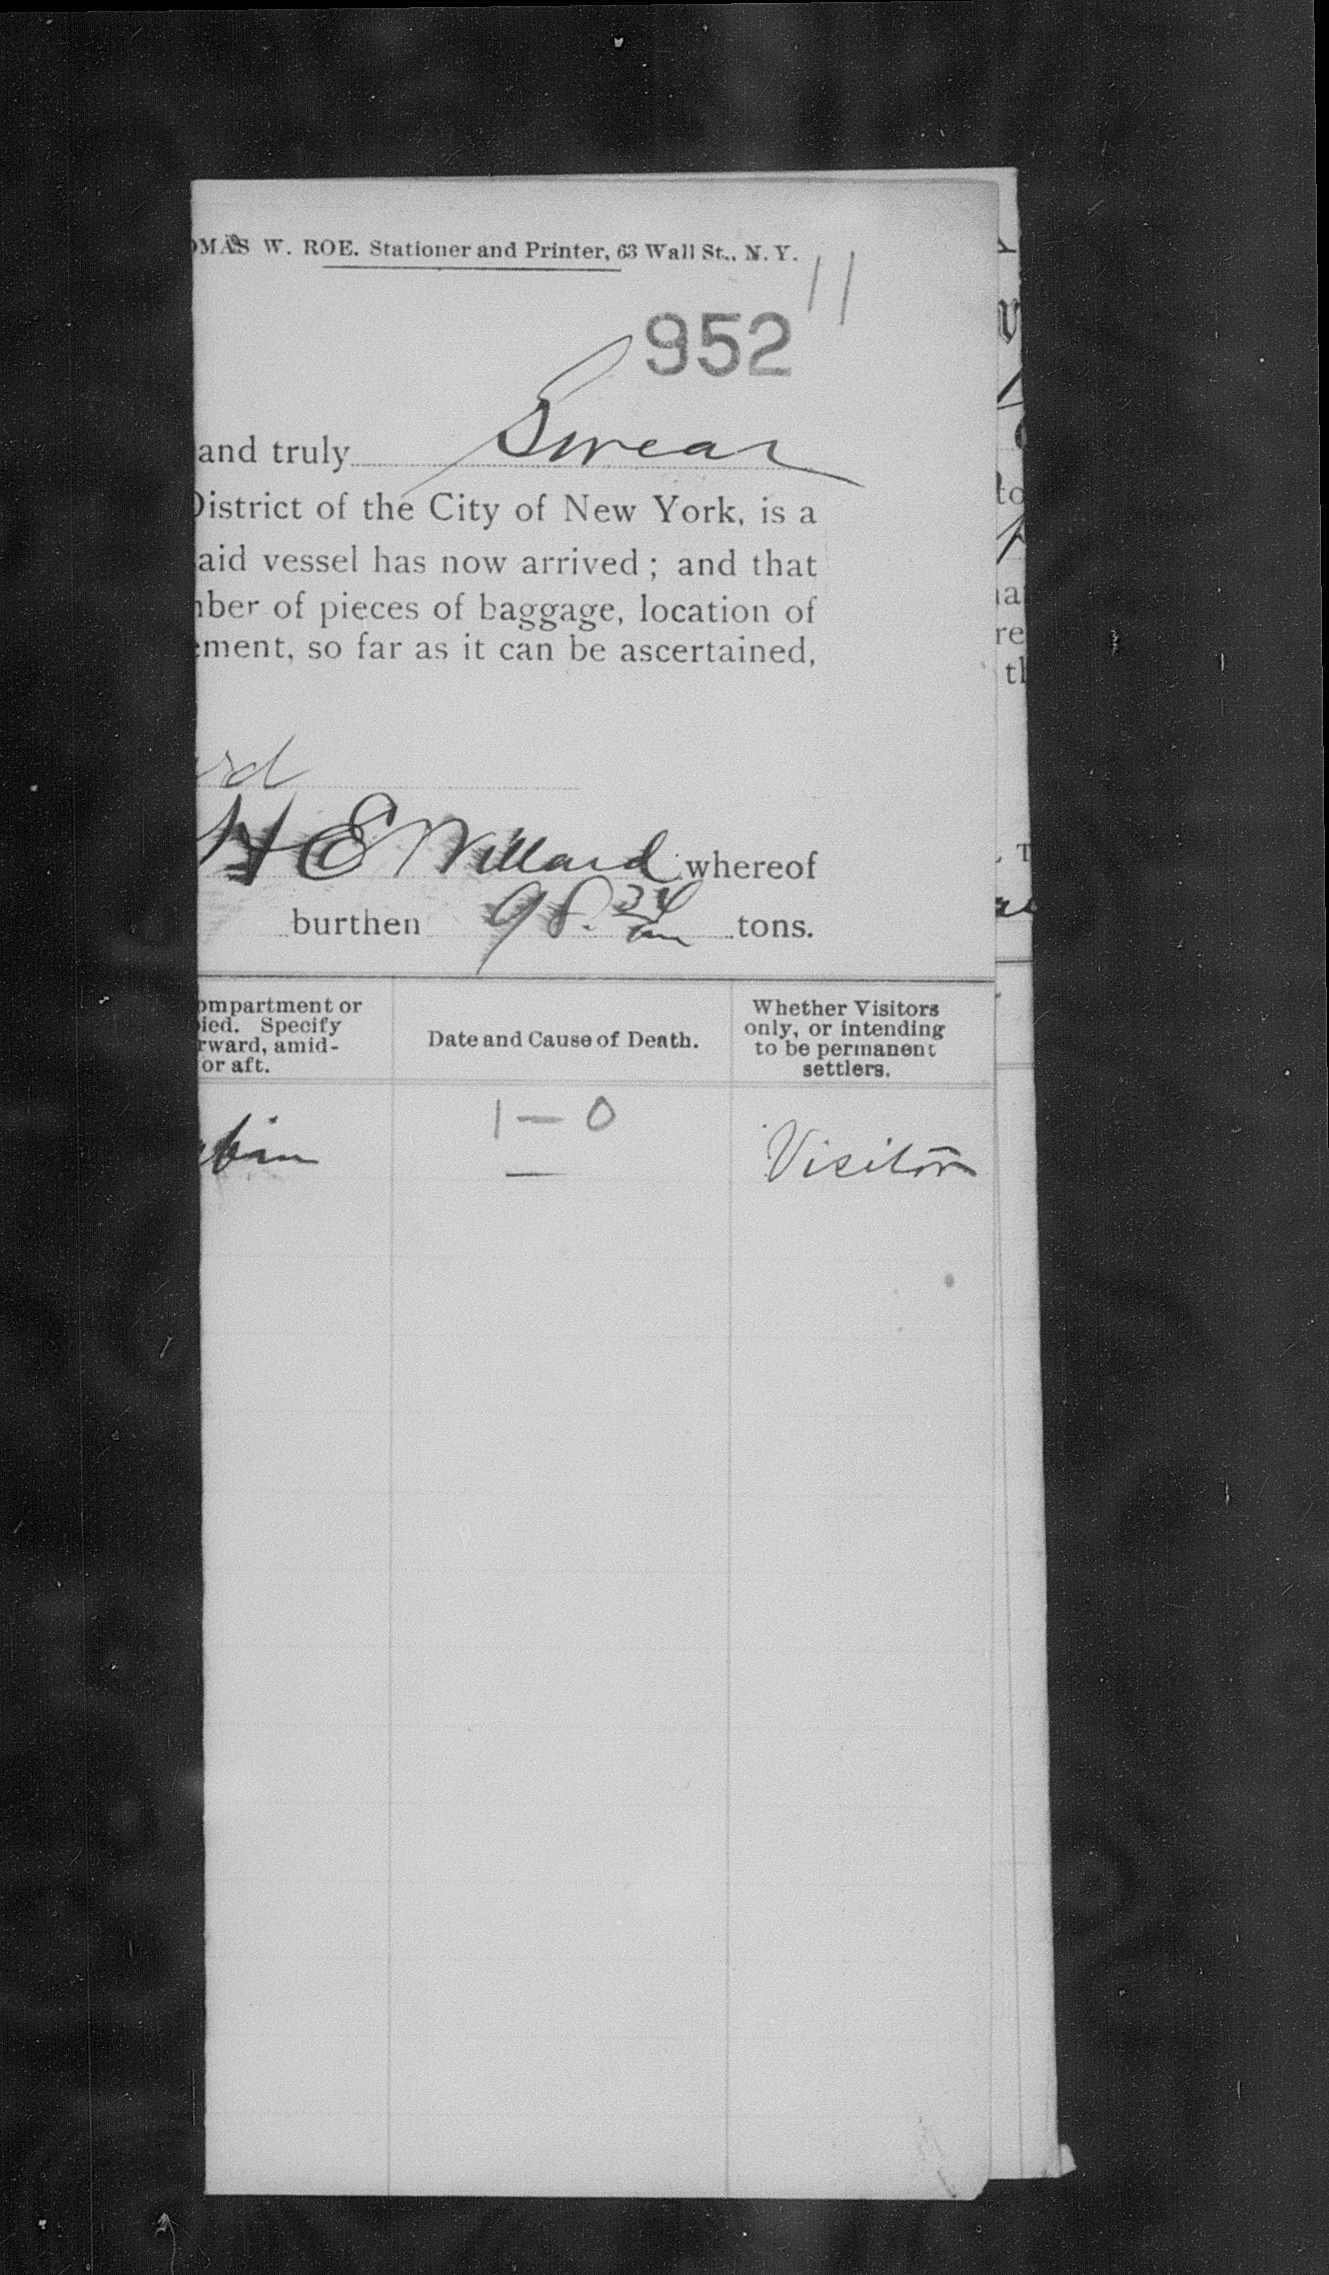 OMAS W. ROE. Stationer and Printer, 63 Wall St., N. Y.
11
952
and truly Swear
District of the City of New York, is a
aid vessel has now arrived; and that
ber of pieces of baggage, location of
ement, so far as it can be ascertained,
rd
H E Willard whereof
burthen 98. 34 tons.
ompartment or
ied. Specify
rward, amid-
or aft.
Date and Cause of Death.
Whether Visitors
only, or intending
to be permanent
settlers.
1 — 0
bin — Visitor
to
re